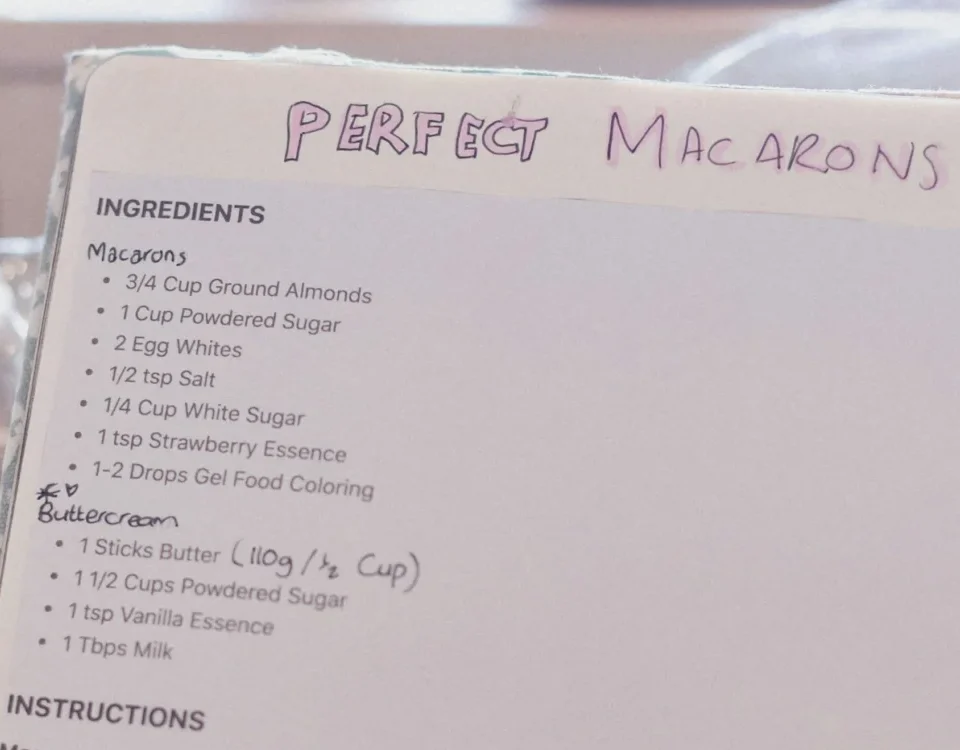 PERFECT MACARONS
INGREDIENTS
Macarons
• 3/4 Cup Ground Almonds
• 1 Cup Powdered Sugar
• 2 Egg Whites
• 1/2 tsp Salt
• 1/4 Cup White Sugar
• 1 tsp Strawberry Essence
• 1-2 Drops Gel Food Coloring
Buttercream
• 1 Sticks Butter (110g / 1/2 Cup)
• 1 1/2 Cups Powdered Sugar
• 1 tsp Vanilla Essence
• 1 Tbps Milk
INSTRUCTIONS